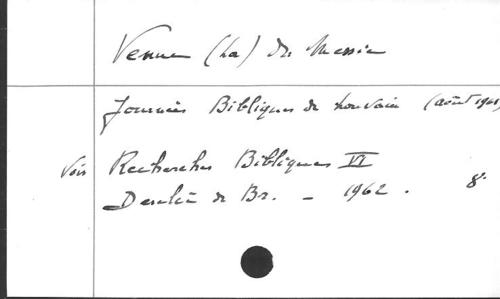 Venue (La) du Messie
Journées Bibliques de Louvain (août 1961)
Voir Recherches Bibliques VI
Desclée de Br. - 1962. 8°